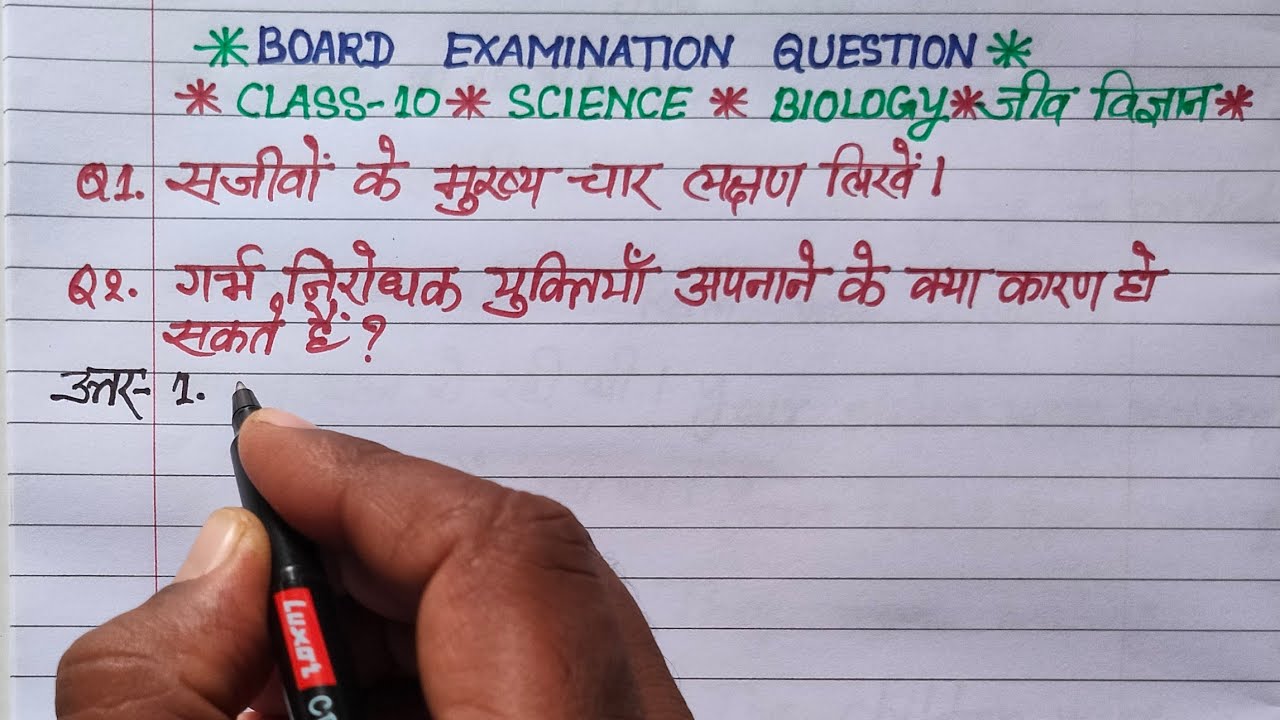 *BOARD EXAMINATION QUESTION*
* CLASS-10* SCIENCE * BIOLOGY*जीव विज्ञान*
Q1. सजीवों के मुख्य चार लक्षण लिखें।
Q2. गर्भ निरोधक युक्तियाँ अपनाने के क्या कारण हो
सकते हैं?
उत्तर- 1.
LUXOR